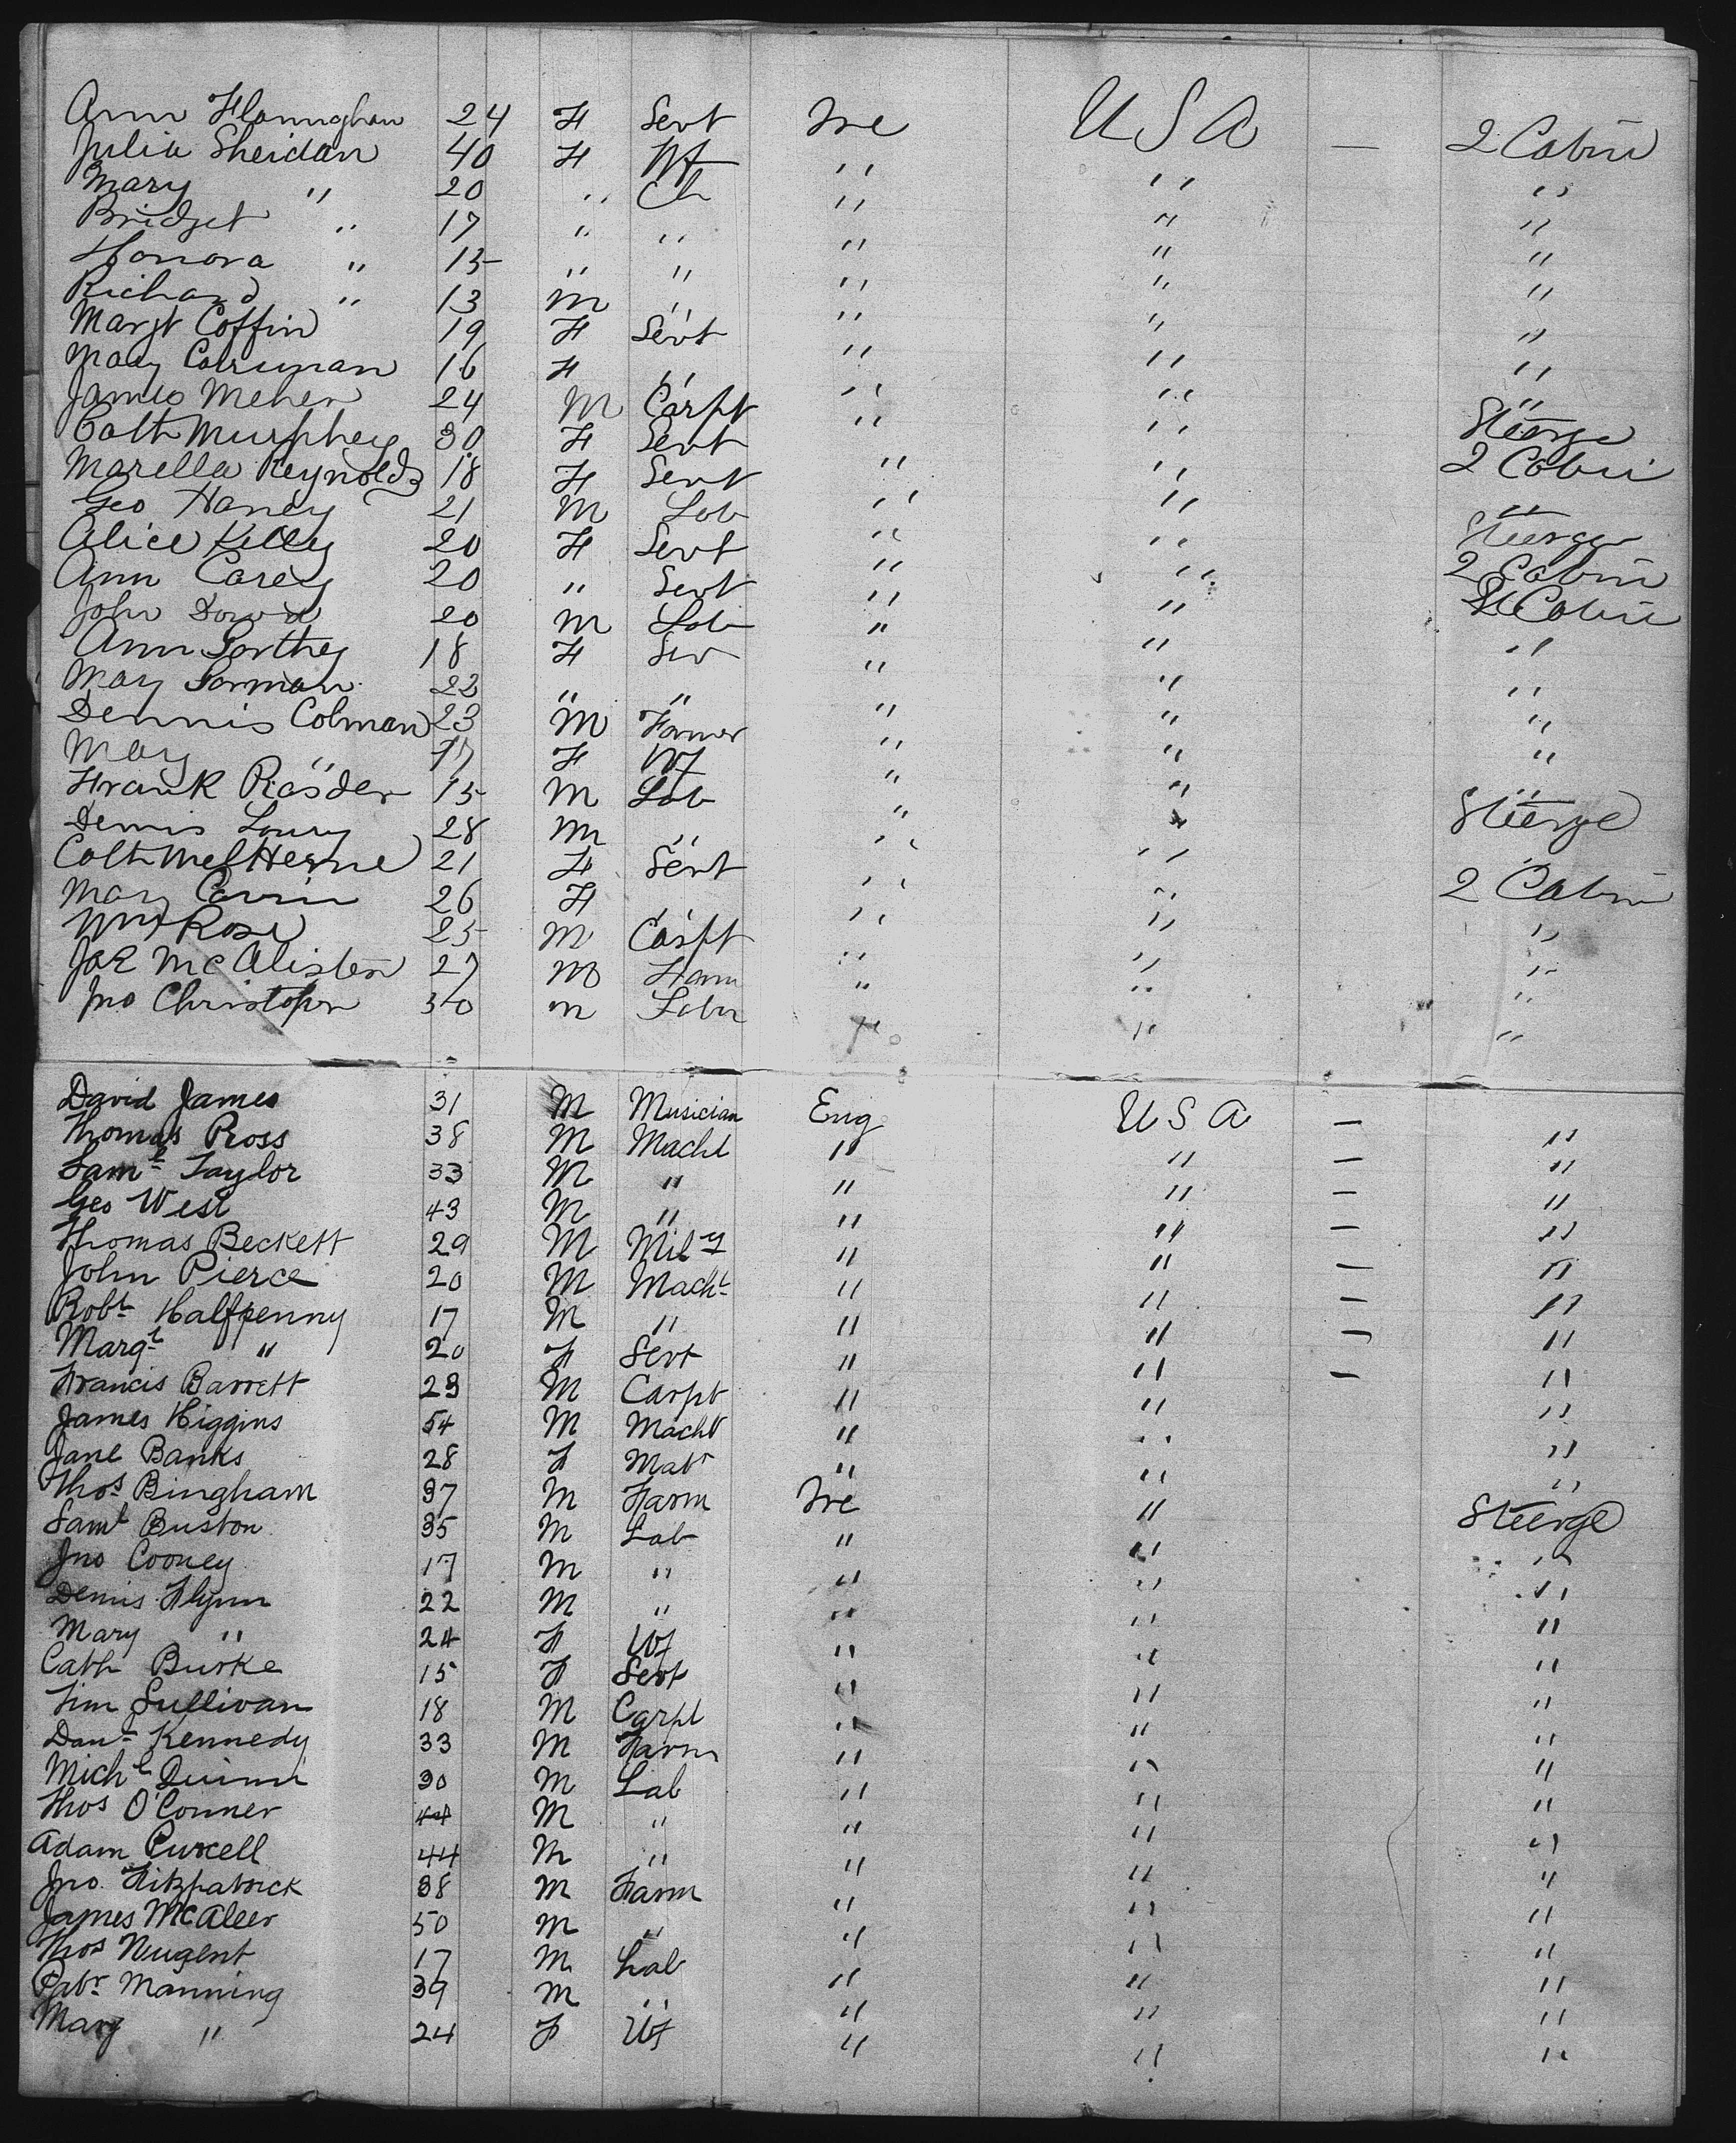 Ann Flannighan 24 F Servt Ire USA — 2 Cabin
Julia Sheridan 40 F Wf " " "
Mary " 20 " Ch " " "
Bridget " 17 " " " " "
Honora " 15 " " " " "
Richard " 13 M " " " "
Margt Coffin 19 F Servt " " "
Mary 16 F " " " "
James Meher 24 M Carpt " " Steerge
Cath Murphey 30 F Servt " " 2 Cabin
Marella Reynolds 18 F Servt " " "
Geo Haney 21 M Lab " " Steerge
Alice Kelly 20 F Servt " " 2 Cabin
Ann Carey 20 " Servt " " 2 Cabin
John 20 M Lab " " "
Ann 18 F Ser " " "
Mary Gorman 22 " " " " "
Dennis Colman 23 M Farmer " " "
Mary " F Wf " " "
Frank 15 M Lab " " Steerge
Dennis Loury 28 M " " "
Cath 21 F Servt " " 2 Cabin
Mary 26 F " " " "
Wm Rose 25 M Carpt " " "
Jas McAlister 27 M Farm " " "
Jno Christopher 30 M Labr " " "
David James 31 M Musician Eng USA — "
Thomas Ross 38 M Macht " " — "
Saml Taylor 33 M " " " — "
Geo West 43 M " " " — "
Thomas Beckett 29 M Mily " " — "
John Pierce 20 M Macht " " — "
Robt Halfpenny 17 M " " " — "
Margt " 20 F Servt " " — "
Francis Barrett 23 M Carpt " " "
James Higgins 54 M Macht " " "
Jane Banks 28 F Matr " " "
Thos Bingham 37 M Farm Ire " Steerge
Saml Buston 35 M Lab " " "
Jno Cooney 17 M " " " "
Denis Flynn 22 M " " " "
Mary " 24 F Wf " " "
Cath Burke 15 F Servt " " "
Tim Sullivan 18 M Carpt " " "
Danl Kennedy 33 M Farm " " "
Michl Quinn 30 M Lab " " "
Thos O'Conner 44 M " " " "
Adam Purcell 44 M " " " "
Jno. Fitzpatrick 38 M Farm " " "
James McAleer 50 M " " " "
Thos Nugent 17 M Lab " " "
Patr Manning 39 M " " " "
Mary " 24 F Wf " " "